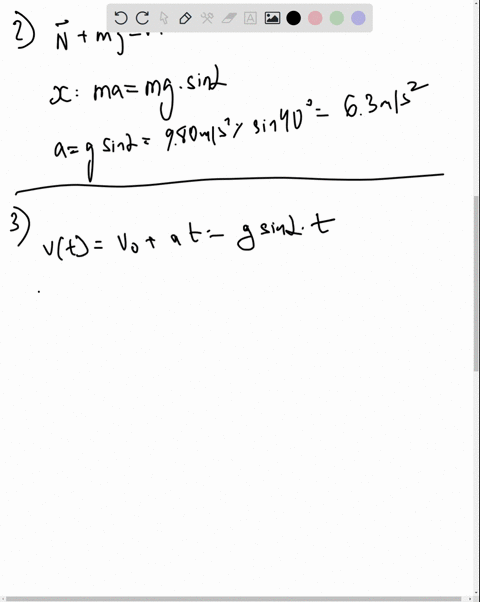 2) N⃗ + mg =
x: ma = mg · sin α
a = g sin α = 9.80 m/s² × sin 40° = 6.3 m/s²
3) v(t) = v₀ + at = g sin α · t